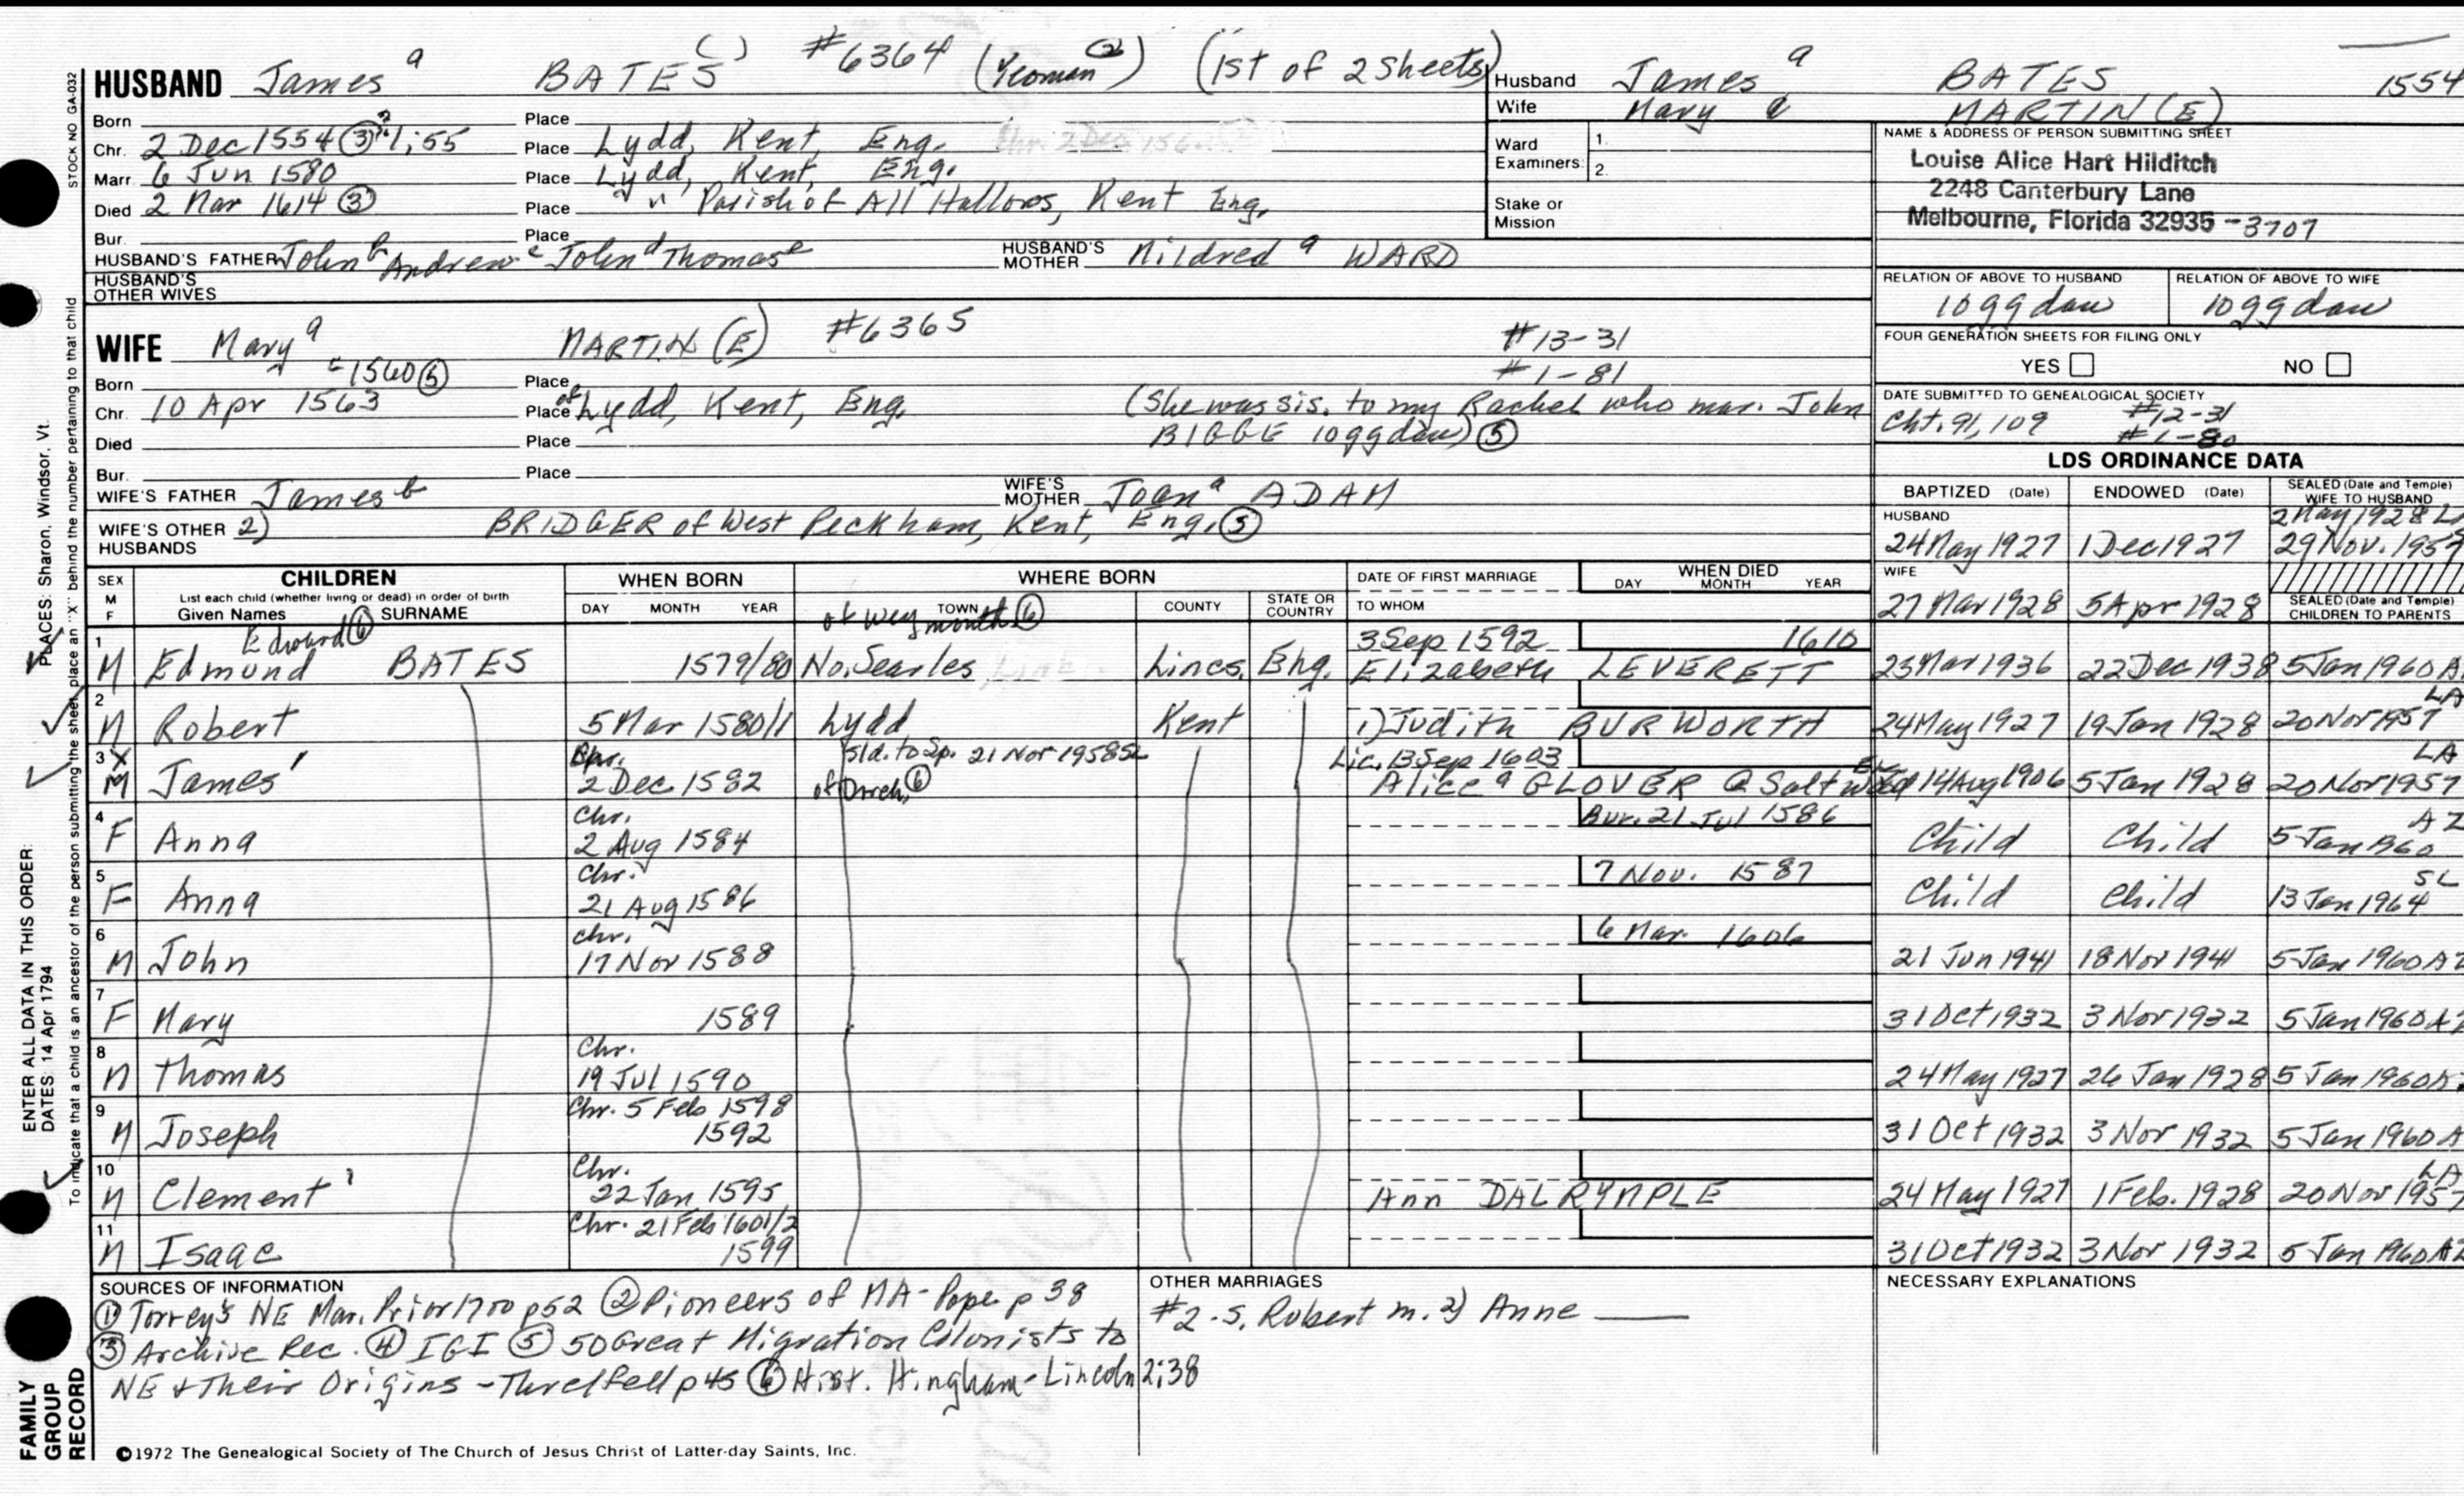 HUSBAND James a BATES ( ) #6364 (Yeoman 2) (1st of 2 Sheets)
Born Place
Chr. 2 Dec 1554 3 1;55 Place Lydd, Kent, Eng.
Marr. 6 Jun 1580 Place Lydd, Kent, Eng.
Died 2 Mar 1614 3 Place " Parish of All Hallows, Kent Eng.
Bur. Place
HUSBAND'S FATHER John b Andrew c John d Thomas e HUSBAND'S MOTHER Mildred a WARD
HUSBAND'S OTHER WIVES
WIFE Mary a MARTIN (E) #6365 #13-31
Born c 1560 6 Place #1-81
Chr. 10 Apr 1563 Place of Lydd, Kent, Eng. (She was sis. to my Rachel who mar. John
Died Place BIGGE 10ggdau) 5
Bur. Place
WIFE'S FATHER James b WIFE'S MOTHER Joan a ADAM
WIFE'S OTHER HUSBANDS 2) BRIDGER of West Peckham, Kent, Eng. 5
Husband James a BATES 1554
Wife Mary a MARTIN (E)
Ward Examiners: 1. 2.
Stake or Mission
NAME & ADDRESS OF PERSON SUBMITTING SHEET
Louise Alice Hart Hilditch
2248 Canterbury Lane
Melbourne, Florida 32935-3707
RELATION OF ABOVE TO HUSBAND RELATION OF ABOVE TO WIFE
10ggdau 10ggdau
FOUR GENERATION SHEETS FOR FILING ONLY
YES NO
DATE SUBMITTED TO GENEALOGICAL SOCIETY
Cht. 91, 109 #12-31
#1-80
LDS ORDINANCE DATA
BAPTIZED (Date) ENDOWED (Date) SEALED (Date and Temple) WIFE TO HUSBAND
HUSBAND 2 May 1928
24 May 1927 1 Dec 1927 29 Nov. 1957
WIFE
27 Mar 1928 5 Apr 1928 SEALED (Date and Temple) CHILDREN TO PARENTS
SEX M F CHILDREN WHEN BORN WHERE BORN DATE OF FIRST MARRIAGE WHEN DIED
List each child (whether living or dead) in order of birth DAY MONTH YEAR
Given Names SURNAME DAY MONTH YEAR TOWN COUNTY STATE OR COUNTRY TO WHOM
of Weymouth 6
1 Edward 6 3 Sep 1592 1610
M Edmund BATES 1579/80 No. Searles Lincs. Eng. Elizabeth LEVERETT 23 Mar 1936 22 Dec 1938 5 Jan 1960 A
2 LA
M Robert 5 Mar 1580/1 Lydd Kent 1) Judith BURWORTH 24 May 1927 19 Jan 1928 20 Nov 1957
3 X Chr. Sld. to Sp. 21 Nov 1958 SL Lic. 13 Sep 1603 LA
M James' 2 Dec. 1582 of Dorch. 6 Alice a GLOVER @ Saltwood 14 Aug 1906 5 Jan 1928 20 Nov 1957
4 Chr. Bur. 21 Jul 1586 AZ
F Anna 2 Aug 1584 Child Child 5 Jan 1960
5 Chr. 7 Nov. 1587 SL
F Anna 21 Aug 1586 Child Child 13 Jan 1964
6 Chr. 6 Mar. 1606
M John 17 Nov 1588 21 Jun 1941 18 Nov 1941 5 Jan 1960 AZ
7
F Mary 1589 31 Oct 1932 3 Nov 1932 5 Jan 1960 AZ
8 Chr.
M Thomas 19 Jul 1590 24 May 1927 26 Jan 1928 5 Jan 1960 AZ
9 Chr. 5 Feb 1598
M Joseph 1592 31 Oct 1932 3 Nov 1932 5 Jan 1960 A
10 Chr. LA
M Clement' 22 Jan 1595 Ann DALRYMPLE 24 May 1927 1 Feb. 1928 20 Nov 1957
11 Chr. 21 Feb 1601/2
M Isaac 1599 31 Oct 1932 3 Nov 1932 5 Jan 1960 AZ
SOURCES OF INFORMATION
1 Torrey's NE Mar. Prior 1700 p52 2 Pioneers of MA - Pope p 38
3 Archive Rec. 4 IGI 5 50 Great Migration Colonists to
NE & Their Origins - Threlfell p 45 6 Hist. Hingham - Lincoln 2;38
OTHER MARRIAGES
#2. S. Robert m. 2) Anne ——
NECESSARY EXPLANATIONS
©1972 The Genealogical Society of The Church of Jesus Christ of Latter-day Saints, Inc.
STOCK NO GA-032
ENTER ALL DATA IN THIS ORDER: PLACES: Sharon, Windsor, Vt.
DATES: 14 Apr 1794
To indicate that a child is an ancestor of the person submitting the sheet, place an "X" behind the number pertaining to that child
FAMILY
GROUP
RECORD